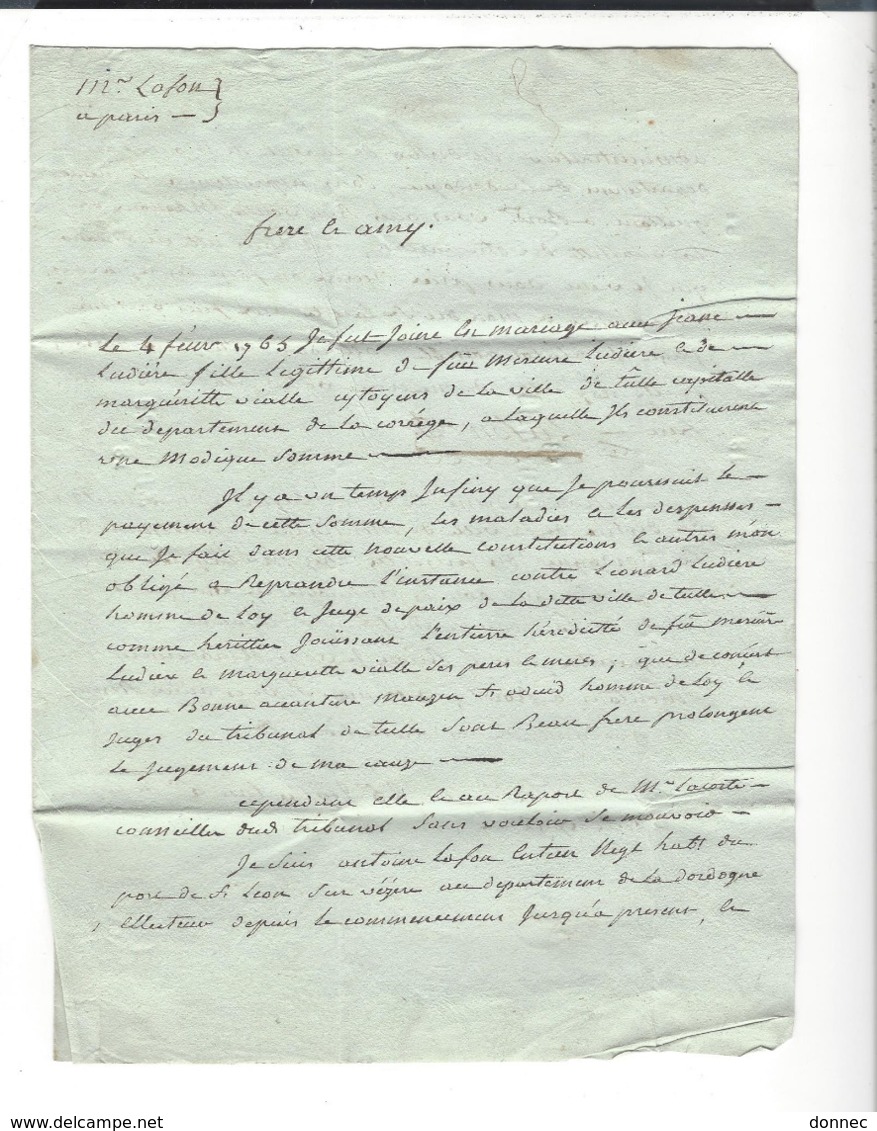 Mr. Lafon
a paris —
frere & amy.
Le 4 feuvr. 1765 Je fut Joint En mariage avec Jeane —
Ludiére fille Legittime de fûû Mercure Ludiere & de —
marguéritte vialle cytoyens de la ville de tûlle capitalle
du departement de la coréege, a laquelle Jls constituerent
une Modique Somme —
Jl y a un temps Jnfiny que Je poursuit Le —
payement de cette Somme, Les maladies & Les despenses —
que Je fait dans cette nouvelle constitutions & autres m'on
obligé a Reprandre l'instance contre Léonard Ludiere
homme de Loy & Juge de paix de la ditte ville de tulle —
comme herittier Joüissant l'entierre hérédité de fûû mercure
Ludiere & margueritte vialle Ses peres & meres, que de consert
avec Bonne avanture Mauzen St. avid homme de Loy &
Juges du tribunal de tulle Sont Beau frere prolongent
Le Jugement de ma cauze —
cependant elle & au Raport de Mr. Lacoste —
conseiller dud. tribunal Sans vouloir Se mouvoir —
Je Suis antoine Lafon antien Negt. habt. du
port de St. Leon Sur vézére au departement de La dordogne
Ellecteur depuis Le commencement Jusqu'a present, &
donnec